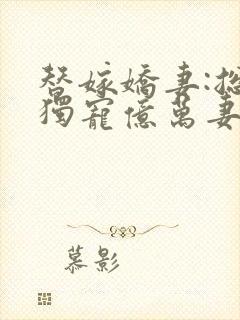 替嫁嬌妻:總
獨寵億萬妻
慕影